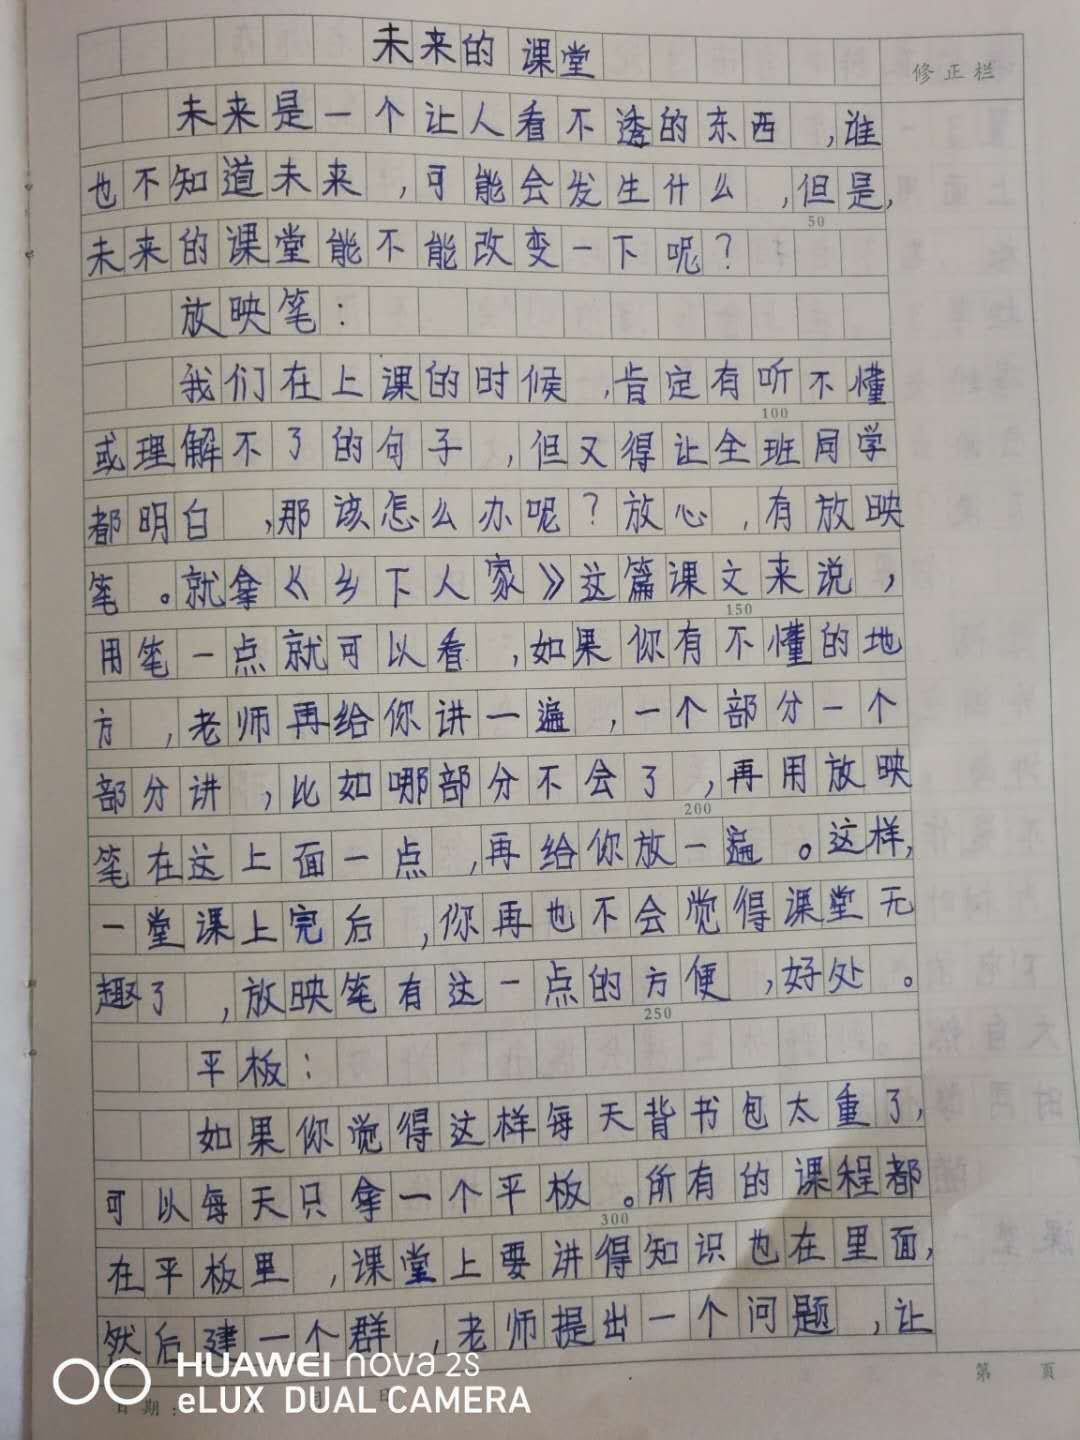 未来的课堂
修正栏
未来是一个让人看不透的东西，谁
也不知道未来，可能会发生什么，但是，
50
未来的课堂能不能改变一下呢？
放映笔：
我们在上课的时候，肯定有听不懂
100
或理解不了的句子，但又得让全班同学
都明白，那该怎么办呢？放心，有放映
笔。就拿《乡下人家》这篇课文来说，
150
用笔一点就可以看，如果你有不懂的地
方，老师再给你讲一遍，一个部分一个
部分讲，比如哪部分不会了，再用放映
200
笔在这上面一点，再给你放一遍。这样，
一堂课上完后，你再也不会觉得课堂无
趣了，放映笔有这一点的方便，好处。
250
平板：
如果你觉得这样每天背书包太重了，
可以每天只拿一个平板。所有的课程都
300
在平板里，课堂上要讲得知识也在里面，
然后建一个群，老师提出一个问题，让
第 页
日期：
HUAWEI nova 2s
eLUX DUAL CAMERA